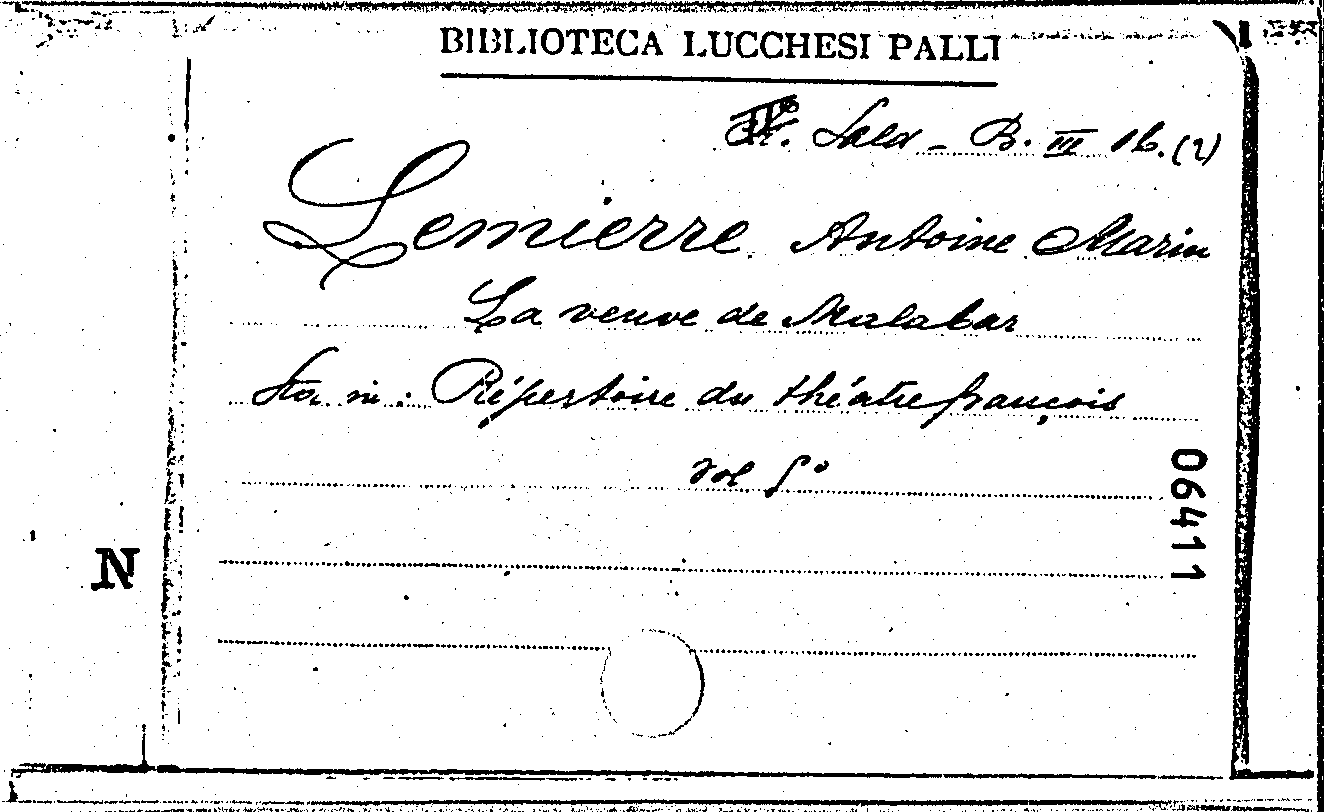 BIBLIOTECA LUCCHESI PALLI
Sala - B. III 16. (2)
Lemierre Antoine Marin
La veuve de Malabar
Sta in: Répertoire du théatre françois
vol 5°
06411
N